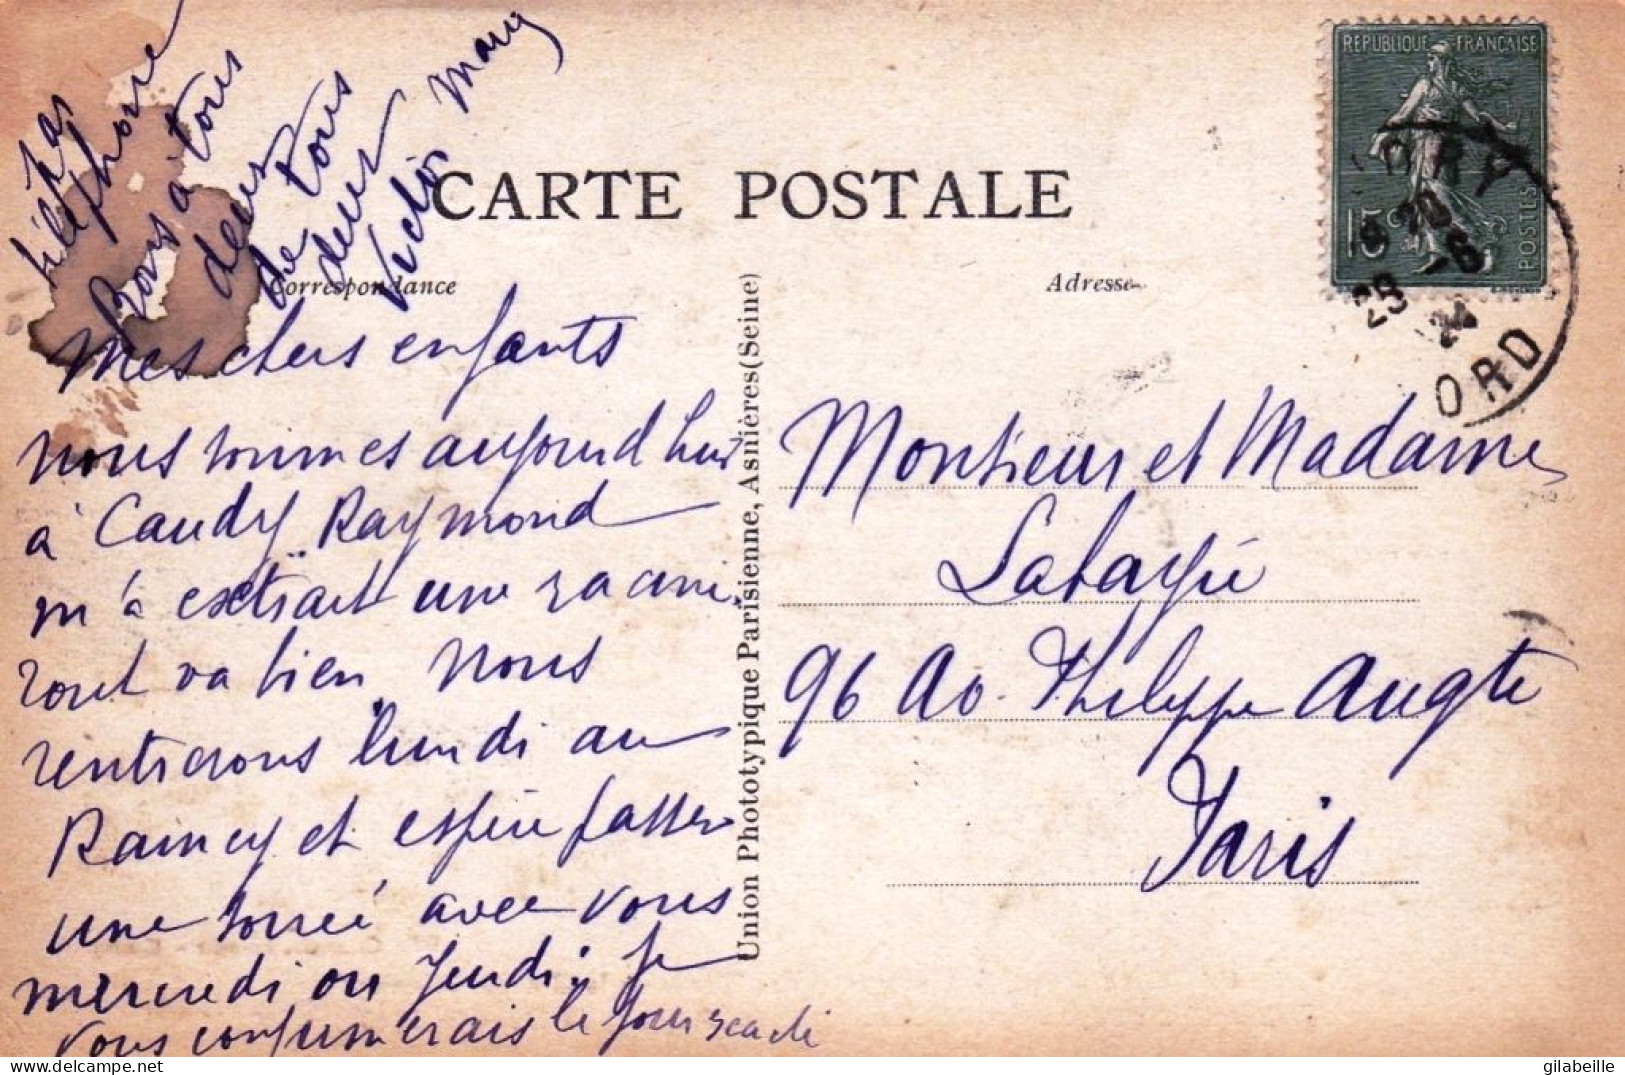 CARTE POSTALE
Correspondance
Adresse
RÉPUBLIQUE FRANÇAISE
15c
POSTES
19 20
29 -6
24
ORD
Mes chers enfants
nous sommes aujourd hui
à Caudry Raymond
m'a extrait une racine
tout va bien nous
rentrerons lundi au
Raincy et espère passer
une soirée avec vous
mercredi ou Jeudi. Je
vous confirmerais le jour
par
téléphone
Bons à tous
deux
de tous
deux
Victor Mary
Union Phototypique Parisienne, Asnières (Seine)
Monsieur et Madame
96 Av. Philippe Augte
Paris
gilabeille